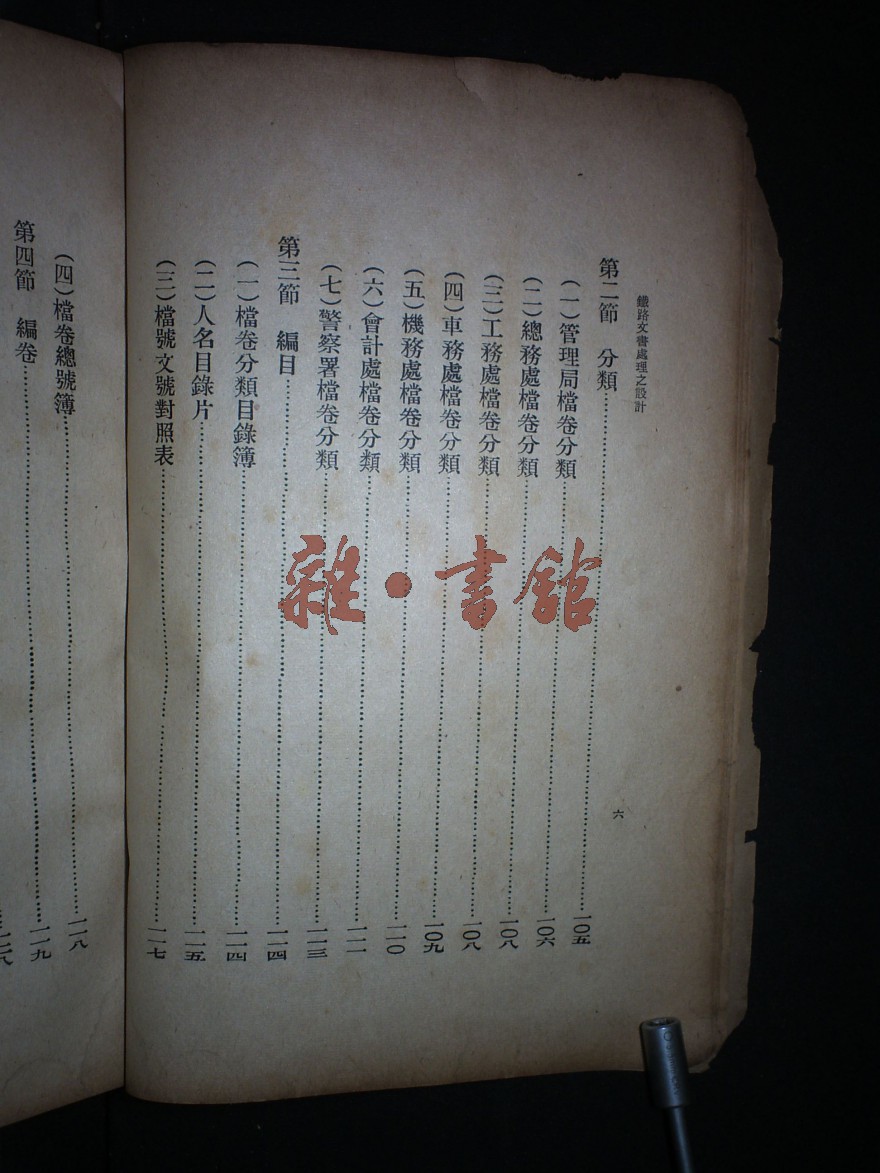 鐵路文書處理之設計
六
第二節 分類……一〇五
(一)管理局檔卷分類……一〇六
(二)總務處檔卷分類……一〇八
(三)工務處檔卷分類……一〇八
(四)車務處檔卷分類……一〇九
(五)機務處檔卷分類……一一〇
(六)會計處檔卷分類……一一一
(七)警察署檔卷分類……一一三
第三節 編目……一一四
(一)檔卷分類目錄簿……一一四
(二)人名目錄片……一一五
(三)檔號文號對照表……一一七
(四)檔卷總號簿……一一八
第四節 編卷……一一九
雜·書館